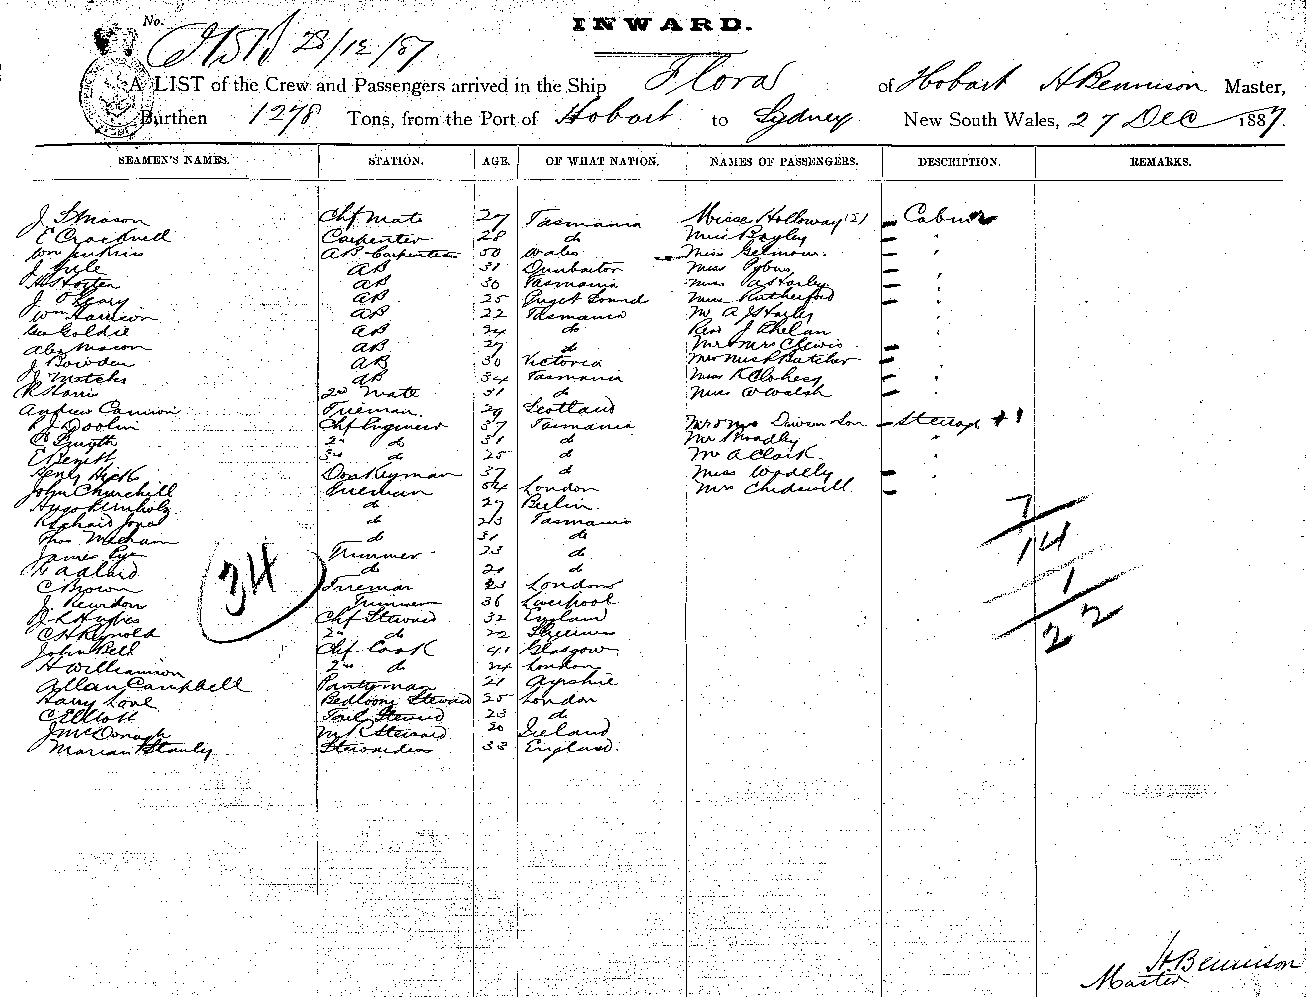 INWARD.
No.
28/12/87
A LIST of the Crew and Passengers arrived in the Ship Flora of Hobart H Bennison Master,
Burthen 1278 Tons, from the Port of Hobart to Sydney New South Wales, 27 Dec 1887.
SEAMEN'S NAMES. STATION. AGE. OF WHAT NATION. NAMES OF PASSENGERS. DESCRIPTION. REMARKS.
Chf Mate 27 Tasmania Misse Holloway (2) Cabin
E Cracknell Carpenter 28 do Miss Bayley "
Wm Jenkins AB Carpenter 50 Wales Miss "
J AB 31 Miss Pybus "
AB 30 Tasmania "
J O'Leary AB 25 Puget Sound Rutherford "
Wm Harrison AB 22 Tasmania Mr A J "
Geo Goldie AB 24 do Rev J Phelan "
Alex Mason AB 29 do Mr Mrs C Lewis "
J Bowden AB 30 Victoria Butcher "
J AB 34 Tasmania Miss K "
R Harris 2nd Mate 31 do Miss W Walsh "
Andrew Cannon 29 Scotland
P J Doolin Chf Engineer 37 Tasmania Mr & Mrs Steerage + 1
C Smyth 2nd do 31 do Mr "
E 3rd do 25 do Mr A Clark. "
Henry Donkeyman 37 do Miss "
John Churchill Fireman 54 London Mrs
Hugo do 29 Berlin
Richard Jones do 23 Tasmania
Thos do 31 do
James Pye Trimmer 23 do
Adlard do 21 do
C Brown Fireman 23 London
J Trimmer 36 Liverpool
Chf Steward 32 England
C H Reynold 2nd do 22
John Bell Chf Cook 41 Glasgow
H Williamson 2nd do 24 London
Allan Campbell Pantryman 21 Ayrshire
Harry Love Steward 25 London
C Elliott Steward 23 do
J McDonagh Steward 30 Ireland
Marian Stanly Stewardess 33 England.
34
7
14
1
22
H Bennison
Master